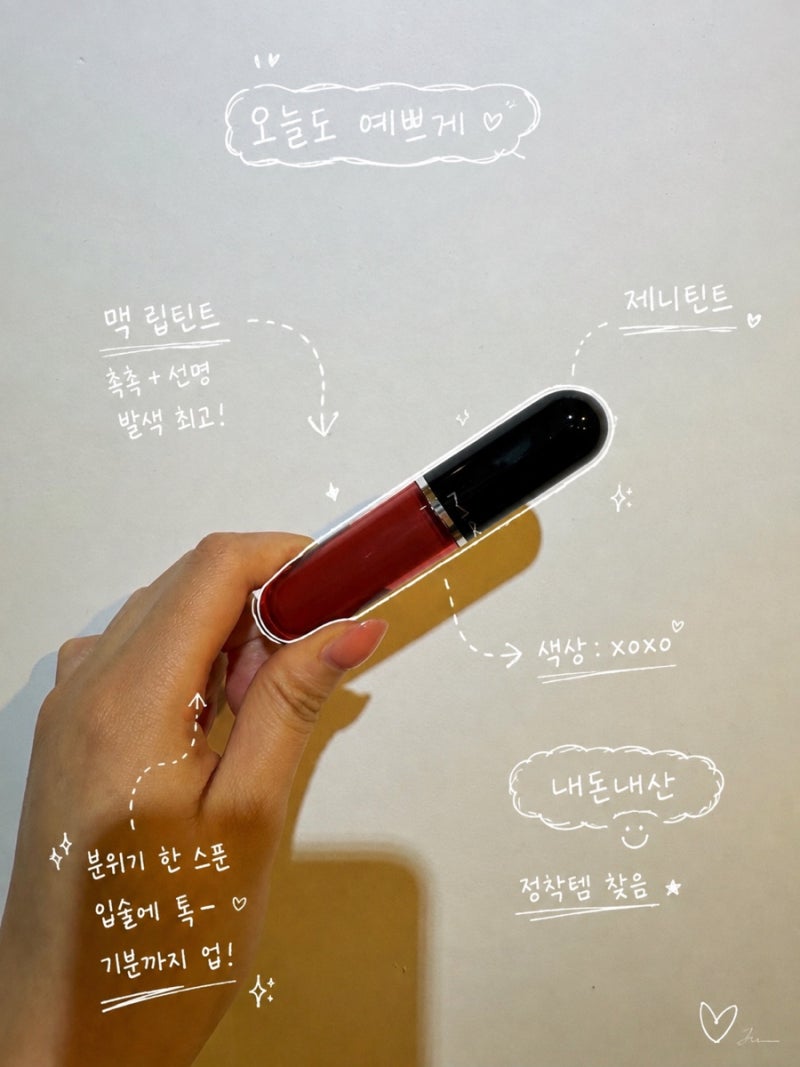 오늘도 예쁘게
맥 립틴트
촉촉 + 선명
발색 최고!
제니틴트
색상 : xoxo
내돈내산
정착템 찾음
분위기 한 스푼
입술에 톡-
기분까지 업!